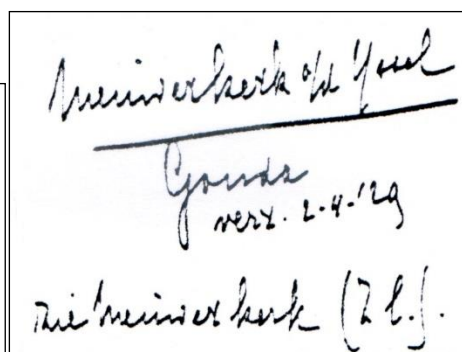 Nieuwerkerk a/d Yssel
Gouda
verz. 2-4-'29
zie Nieuwerkerk (Z.H.).